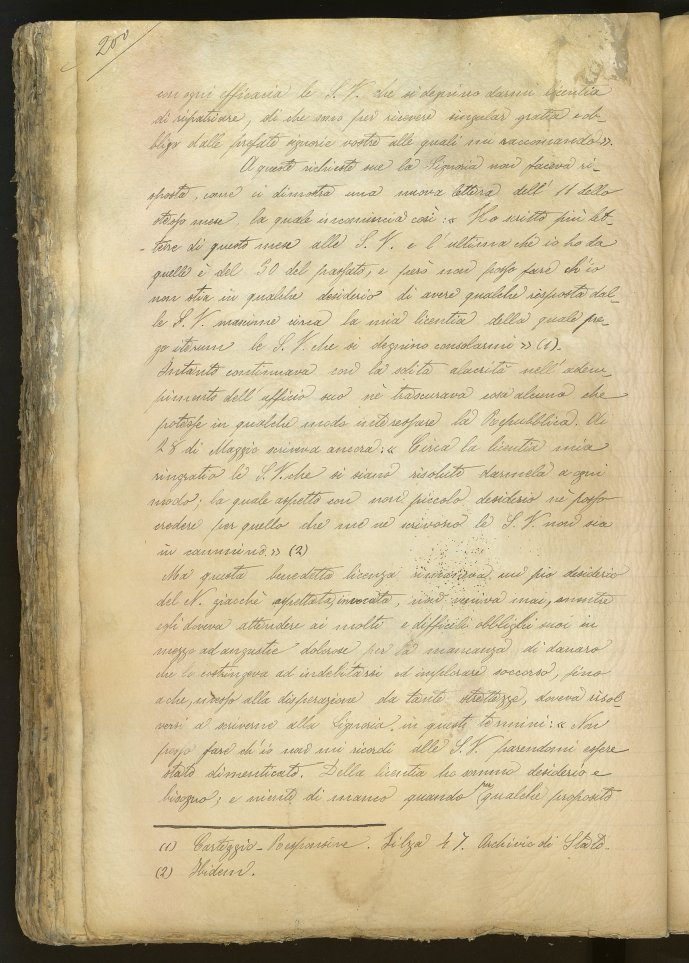 200
con ogni efficacia le S. V. che si degnino darmi licentia
di ripatriare, di che sono per ricevere singular gratia e ob-
bligo dalle prefate signorie vostre alle quali mi raccomando».
A queste richieste sue la Signoria non faceva ri-
sposta, come ci dimostra una nuova lettera dell' 11 dello
stesso mese, la quale incomincia così: « Ho scritto più let-
tere di questo mese alle S. V. e l'ultima che io ho da
quelle è del 30 del passato, e però non posso fare ch'io
non stia in qualche desiderio di avere qualche risposta dal-
le S. V. maxime circa la mia licentia della quale pre-
go iterum le S. V. che si degnino consolarmi » (1).
Intanto continuava con la solita alacrità nell' adem-
pimento dell' ufficio suo nè trascurava cosa alcuna che
potesse in qualche modo interessare la Repubblica. Ai
28 di Maggio scriveva ancora: « Circa la licentia mia
ringratio le S. V. che si siano risolute darmela a ogni
modo; la quale aspetto con non piccolo desiderio nè posso
credere per quello che me ne scrivono le S. V. non sia
in cammino » (2)
Ma questa benedetta licenza rimaneva un pio desiderio
del N. giacchè aspettata, invocata, non veniva mai, mentre
egli doveva attendere ai molti e difficili obblighi suoi in
mezzo ad angustie dolorose per la mancanza di danaro
che lo costringeva ad indebitarsi ed implorare soccorso, fino
a che, mosso alla disperazione da tante strettezze, doveva risol-
versi a scriverne alla Signoria in questi termini: « Non
posso fare ch'io non mi ricordi alle S. V. parendomi essere
stato dimenticato. Della licentia ho sommo desiderio e
bisogno; e niente di manco quando per qualche proposito
(1) Carteggio - Responsive. Filza 47. Archivio di Stato.
(2) Ibidem.